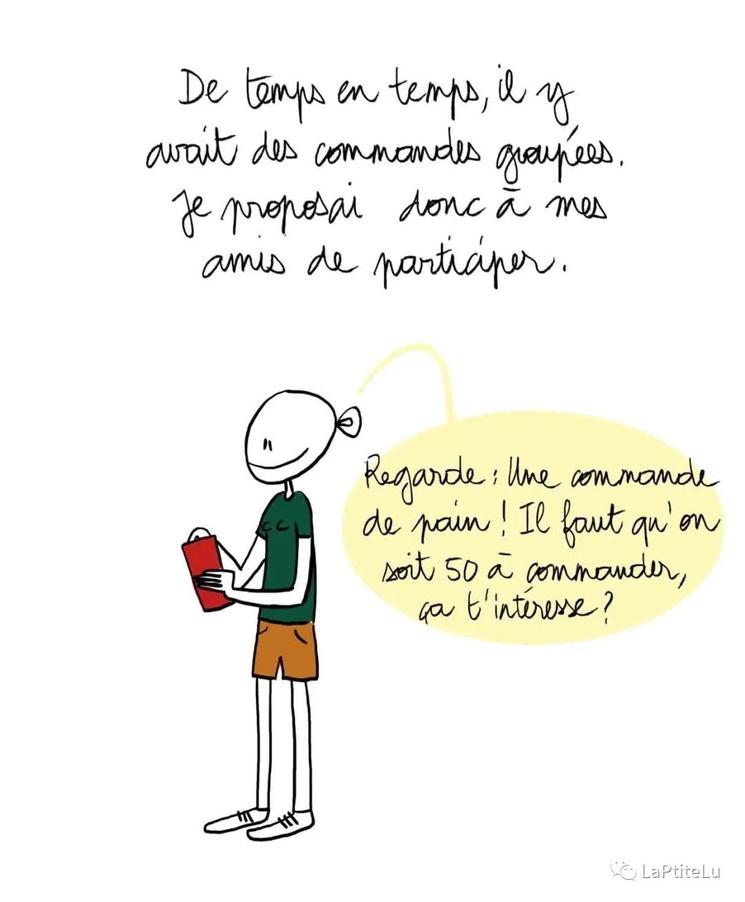 De temps en temps, il y
avait des commandes groupées.
Je proposai donc à mes
amis de participer.
Regarde : Une commande
de pain ! Il faut qu'on
soit 50 à commander,
ça t'intéresse ?
LaPtiteLu